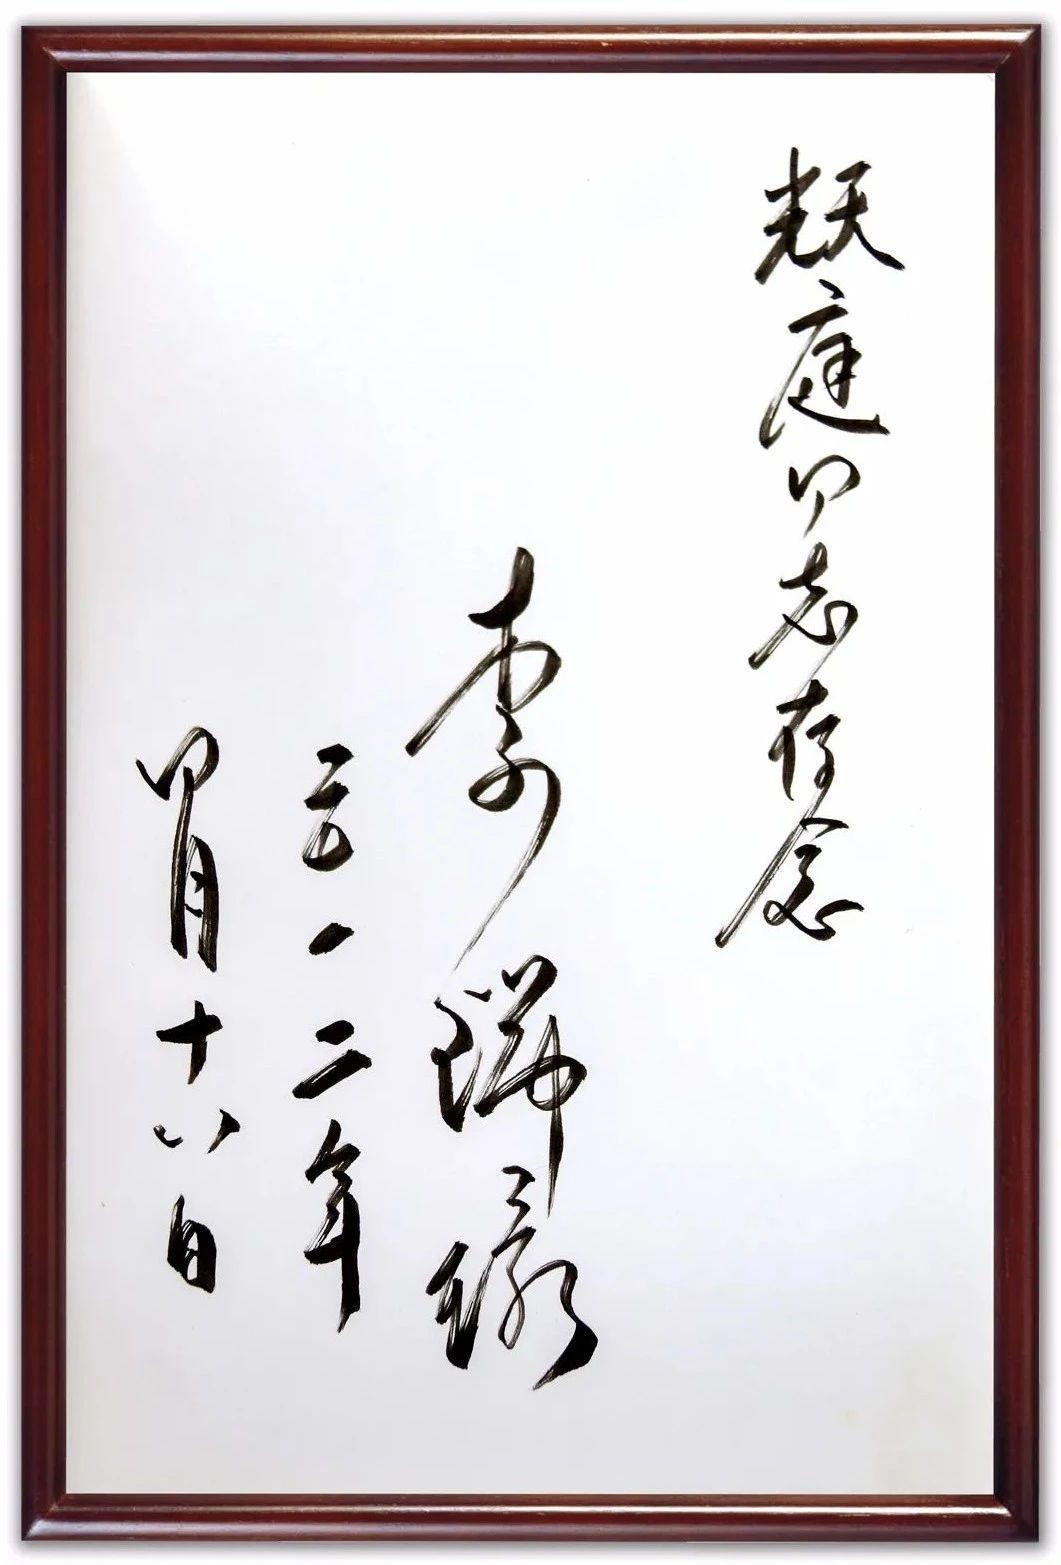 庭同志存念
李瑞
二〇一二年
四月十八日